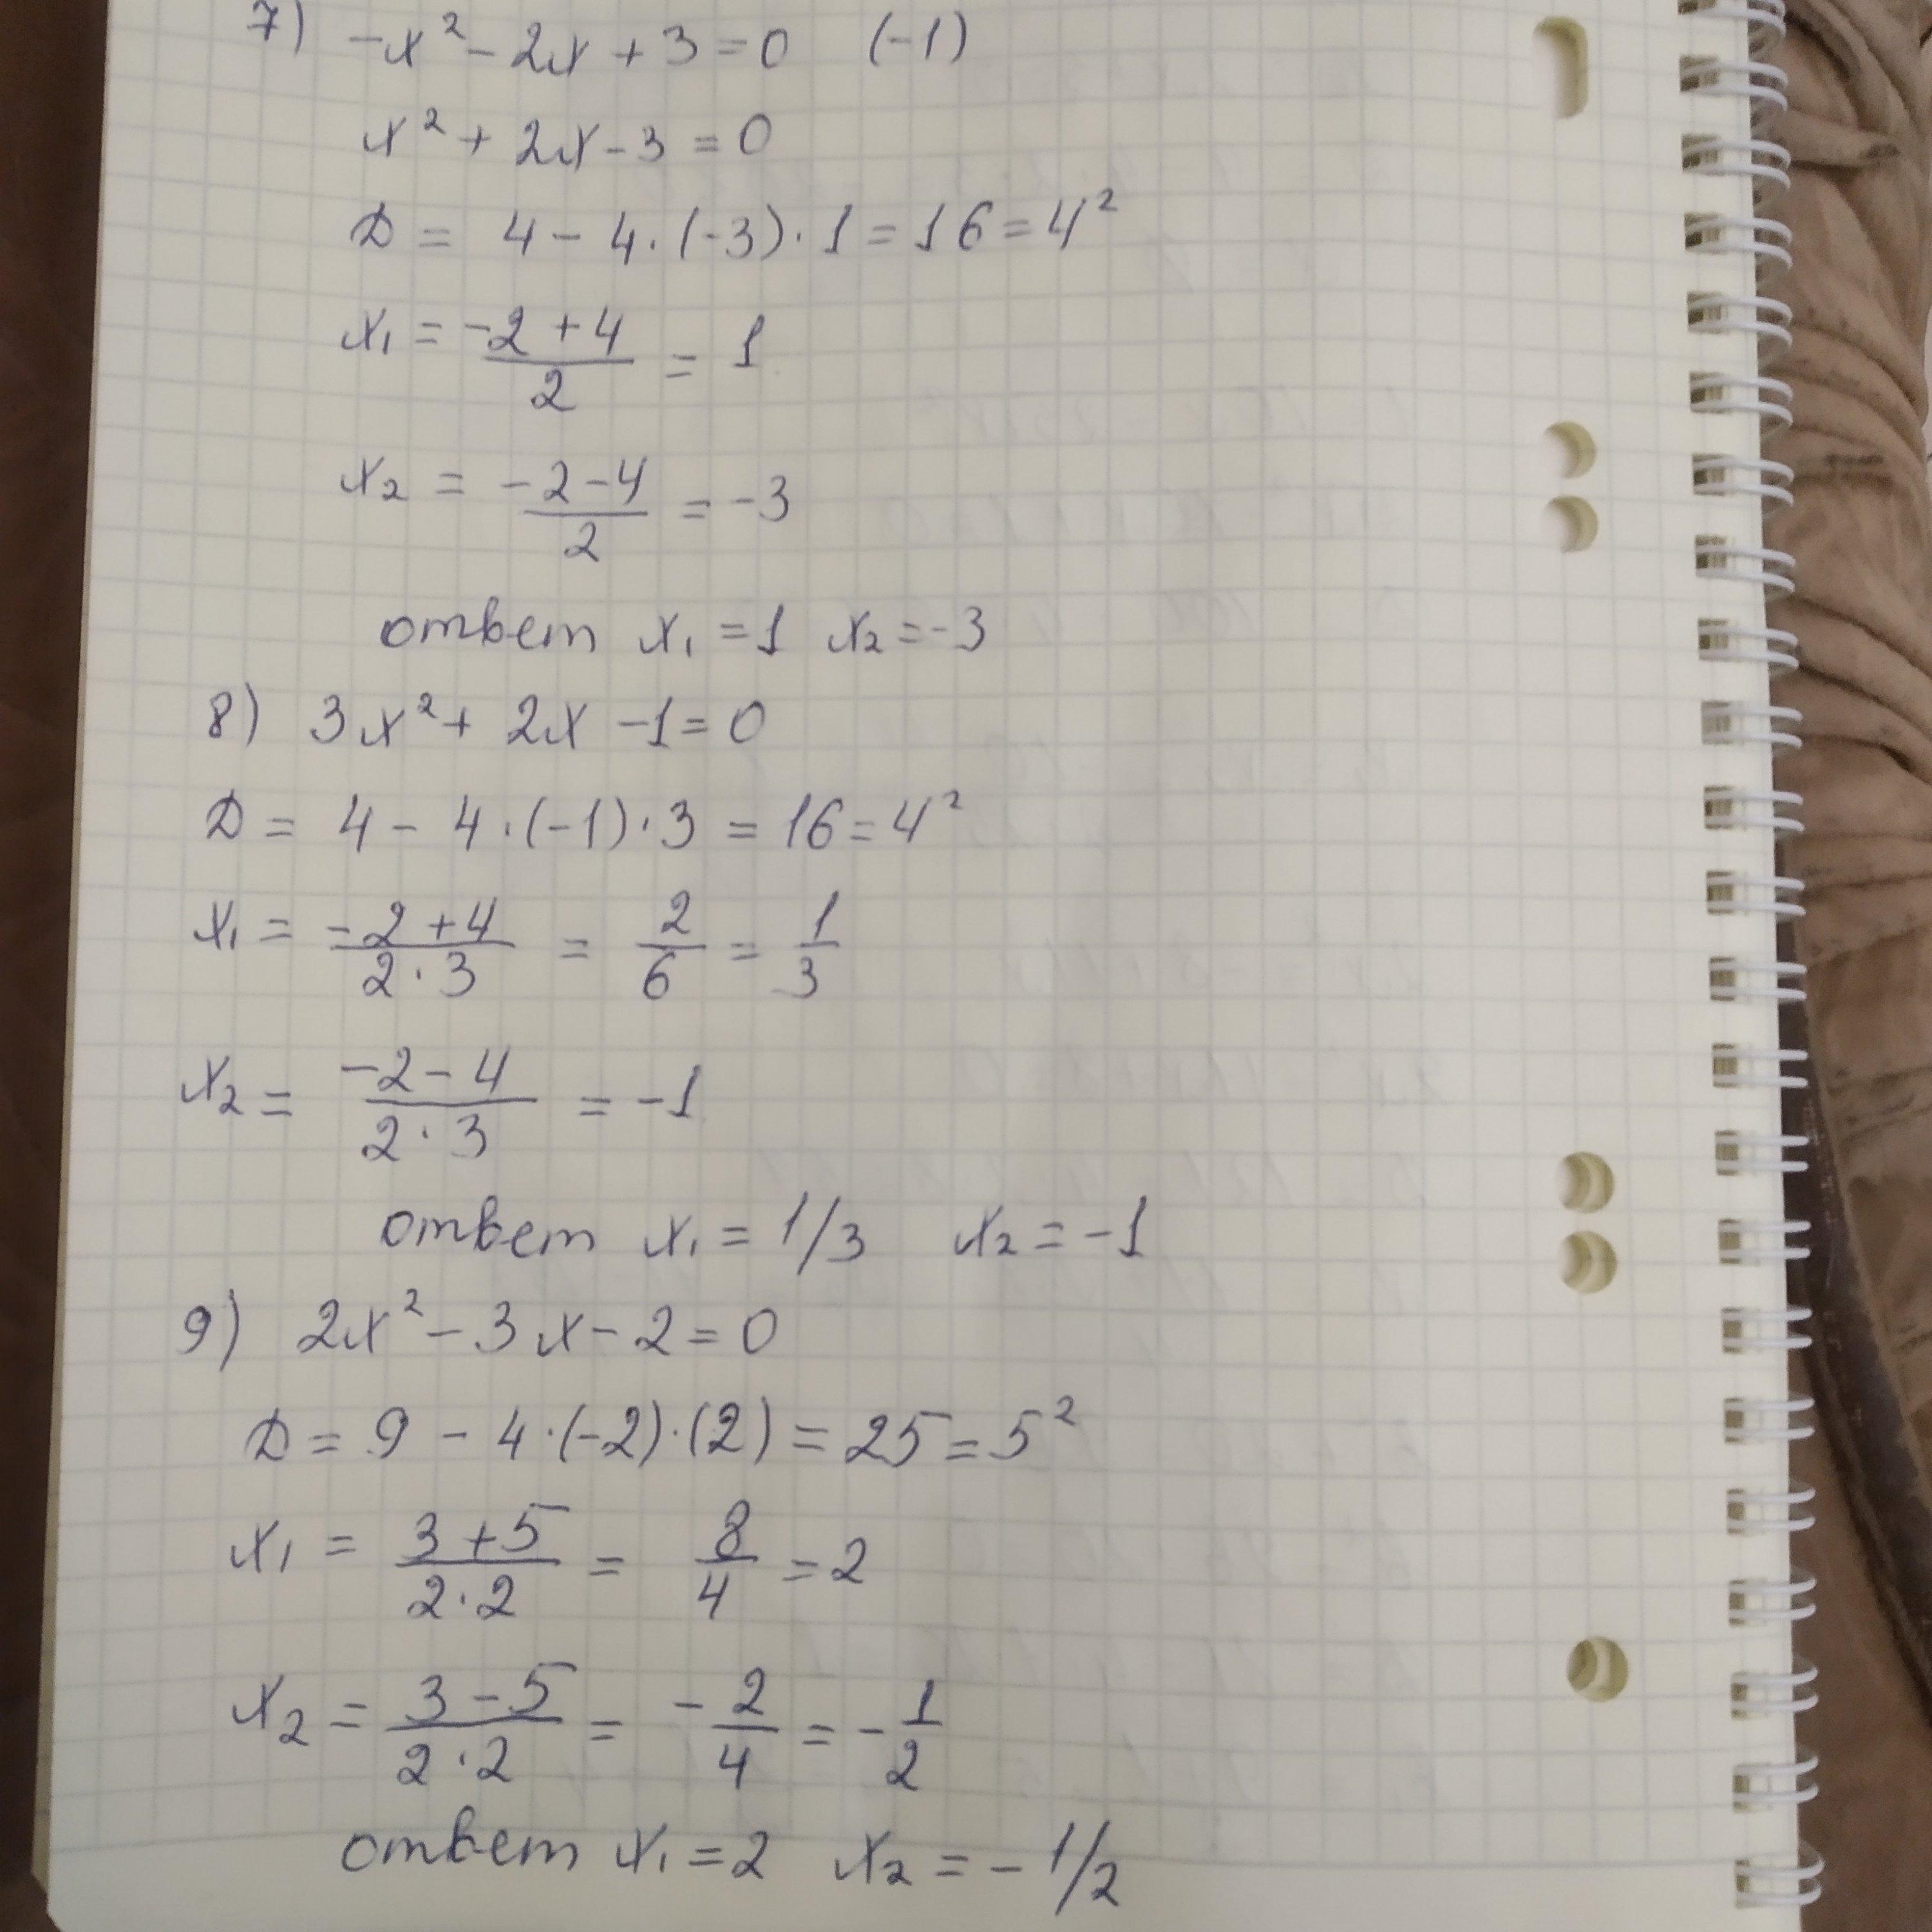 7) -x² - 2x + 3 = 0 (-1)
x² + 2x - 3 = 0
D = 4 - 4·(-3)·1 = 16 = 4²
x₁ = (-2 + 4)/2 = 1
x₂ = (-2 - 4)/2 = -3
ответ x₁ = 1 x₂ = -3
8) 3x² + 2x - 1 = 0
D = 4 - 4·(-1)·3 = 16 = 4²
x₁ = (-2 + 4)/(2·3) = 2/6 = 1/3
x₂ = (-2 - 4)/(2·3) = -1
ответ x₁ = 1/3 x₂ = -1
9) 2x² - 3x - 2 = 0
D = 9 - 4·(-2)·(2) = 25 = 5²
x₁ = (3 + 5)/(2·2) = 8/4 = 2
x₂ = (3 - 5)/(2·2) = -2/4 = -1/2
ответ x₁ = 2 x₂ = -1/2